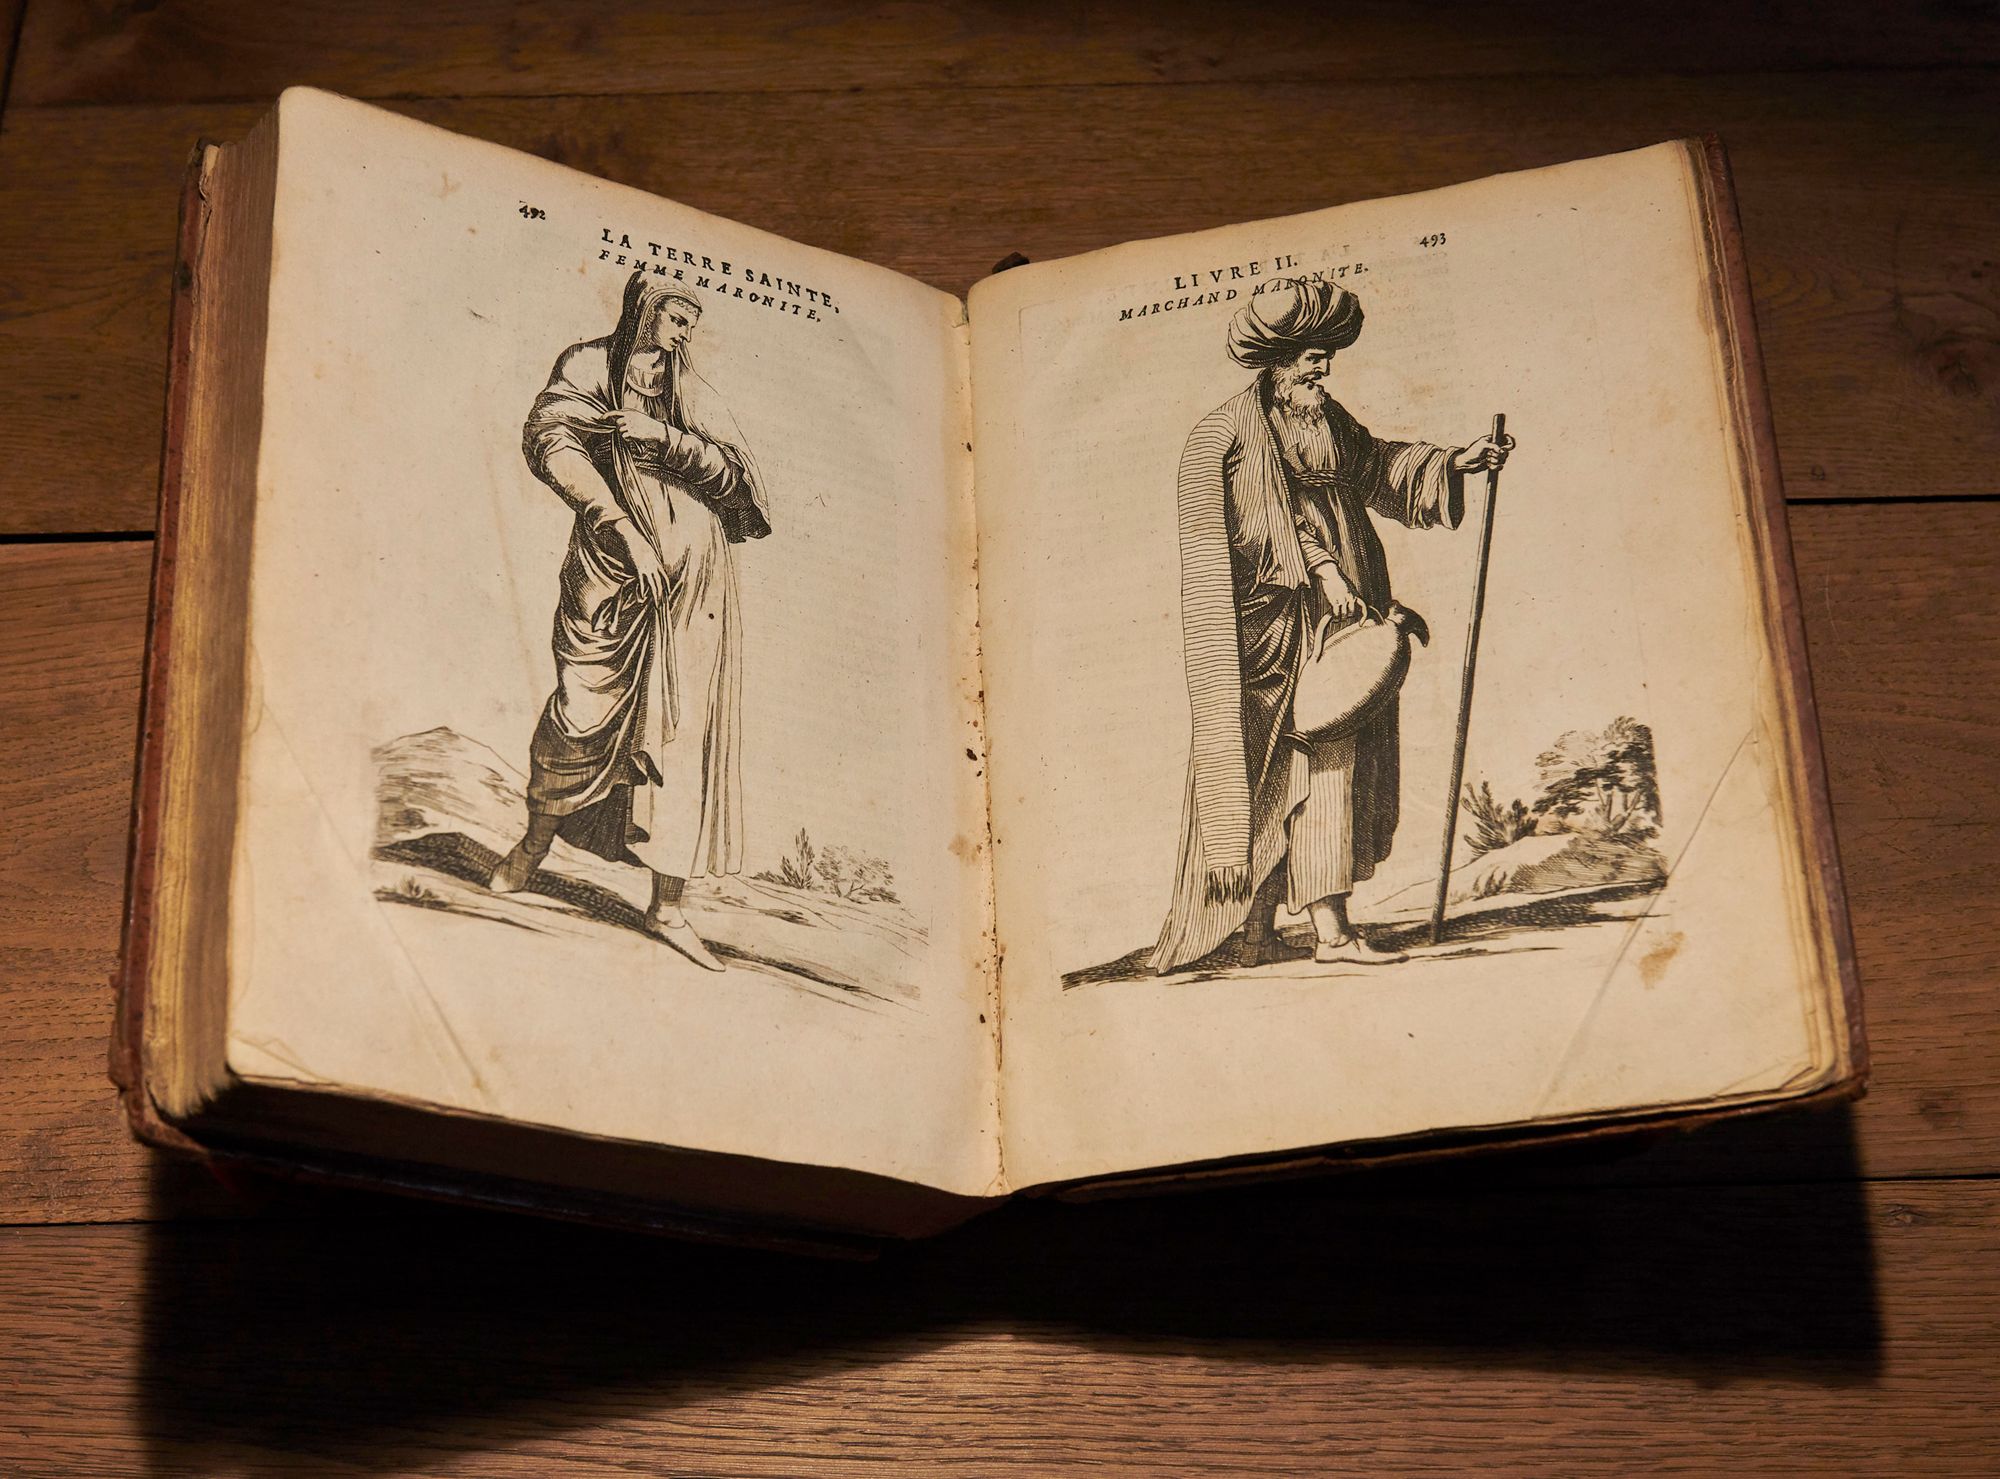 492
LA TERRE SAINTE,
FEMME MARONITE,
493
LIVRE II.
MARCHAND MARONITE.